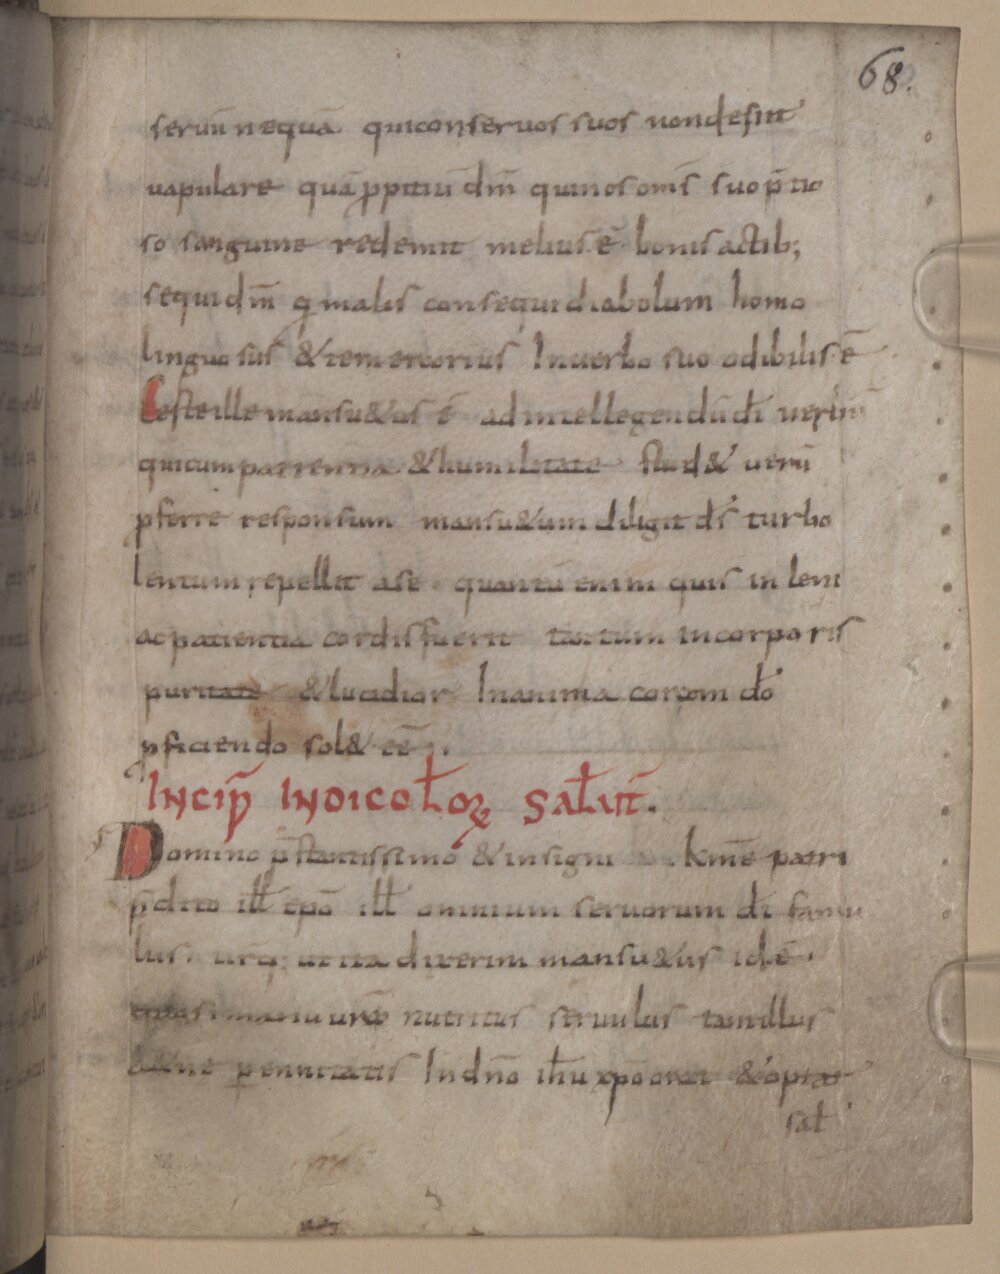 68.
seruū nequā quiconseruos suos nondesiit
uapulare quā ꝓpitiū dm̄ quinos om̄s suo p̄tio
so sanguine redemit melius ē bonis actib;
sequi dm̄ q̄ malis consequi diabolum homo
linguosus & temerarius In uerbo suo odibilis ē
Celeste ille mansu&us ē ad intellegendū dī uerbū
qui cum patientia & humilitate stud& uerū
ꝓferre responsum mansu&um diligit d̄s turbo
lentum repellit a se quantū enim quis in leni
ac patientia cordis fuerit tantum in corporis
puritate & lucidior In anima coram dō
ꝓficiendo sol& eē
INCIP̄ INDICOL̄OꝜ SAL̄UT̄.
Domino p̄stantissimo & insigni kīme patri
p̄dito ill̄ ep̄o ill̄ omnium seruorum dī famu
lus urq; ut ita dixerim mansu&us id ē
manu ur̄o nutritus seruulus tantillus
pennitatis In dn̄o ih̄u xp̄o &optat
sal̄